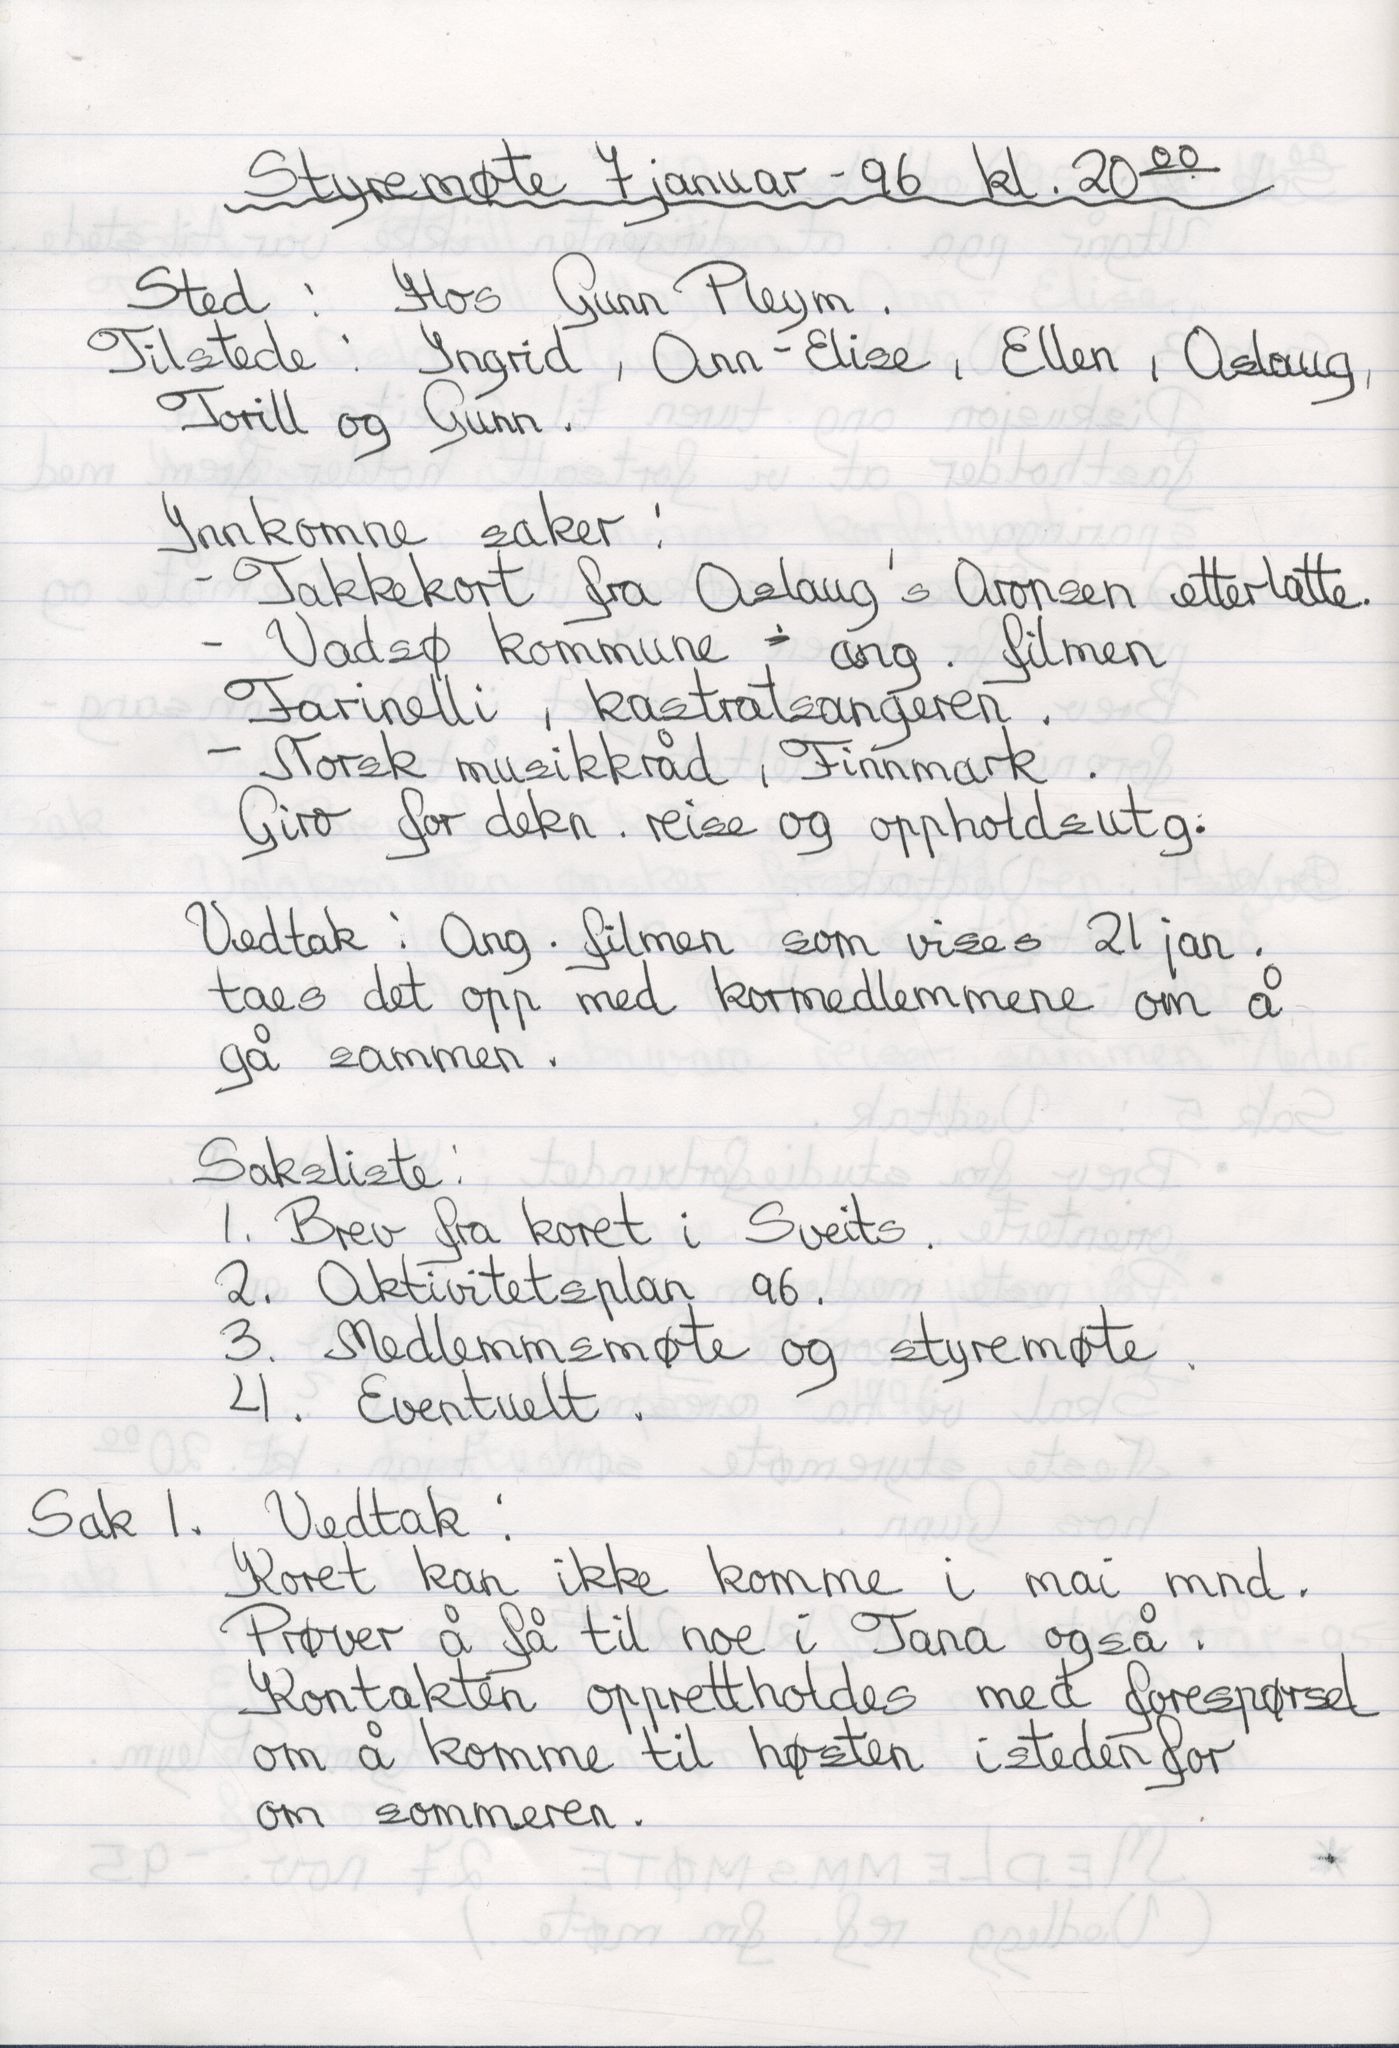 Styremøte 7 januar - 96 kl. 20⁰⁰
Sted : Hos Gunn Pleym.
Tilstede : Ingrid, Ann-Elise, Ellen, Aslaug,
Torill og Gunn.
Innkomne saker :
- Takkekort fra Aslaug's Aronsen etterlatte.
- Vadsø kommune : ang. filmen
Farinelli, kastratsangeren.
- Norsk musikkråd, Finnmark.
Giro for dekn. reise og oppholdsutg.
Vedtak : Ang. filmen som vises 21 jan.
taes det opp med kormedlemmene om å
gå sammen.
Saksliste :
1. Brev fra koret i Sveits.
2. Aktivitetsplan 96.
3. Medlemmsmøte og styremøte.
4. Eventuelt.
Sak 1. Vedtak :
Koret kan ikke komme i mai mnd.
Prøver å få til noe i Tana også.
Kontakten opprettholdes med forespørsel
om å komme til høsten istedenfor
om sommeren.